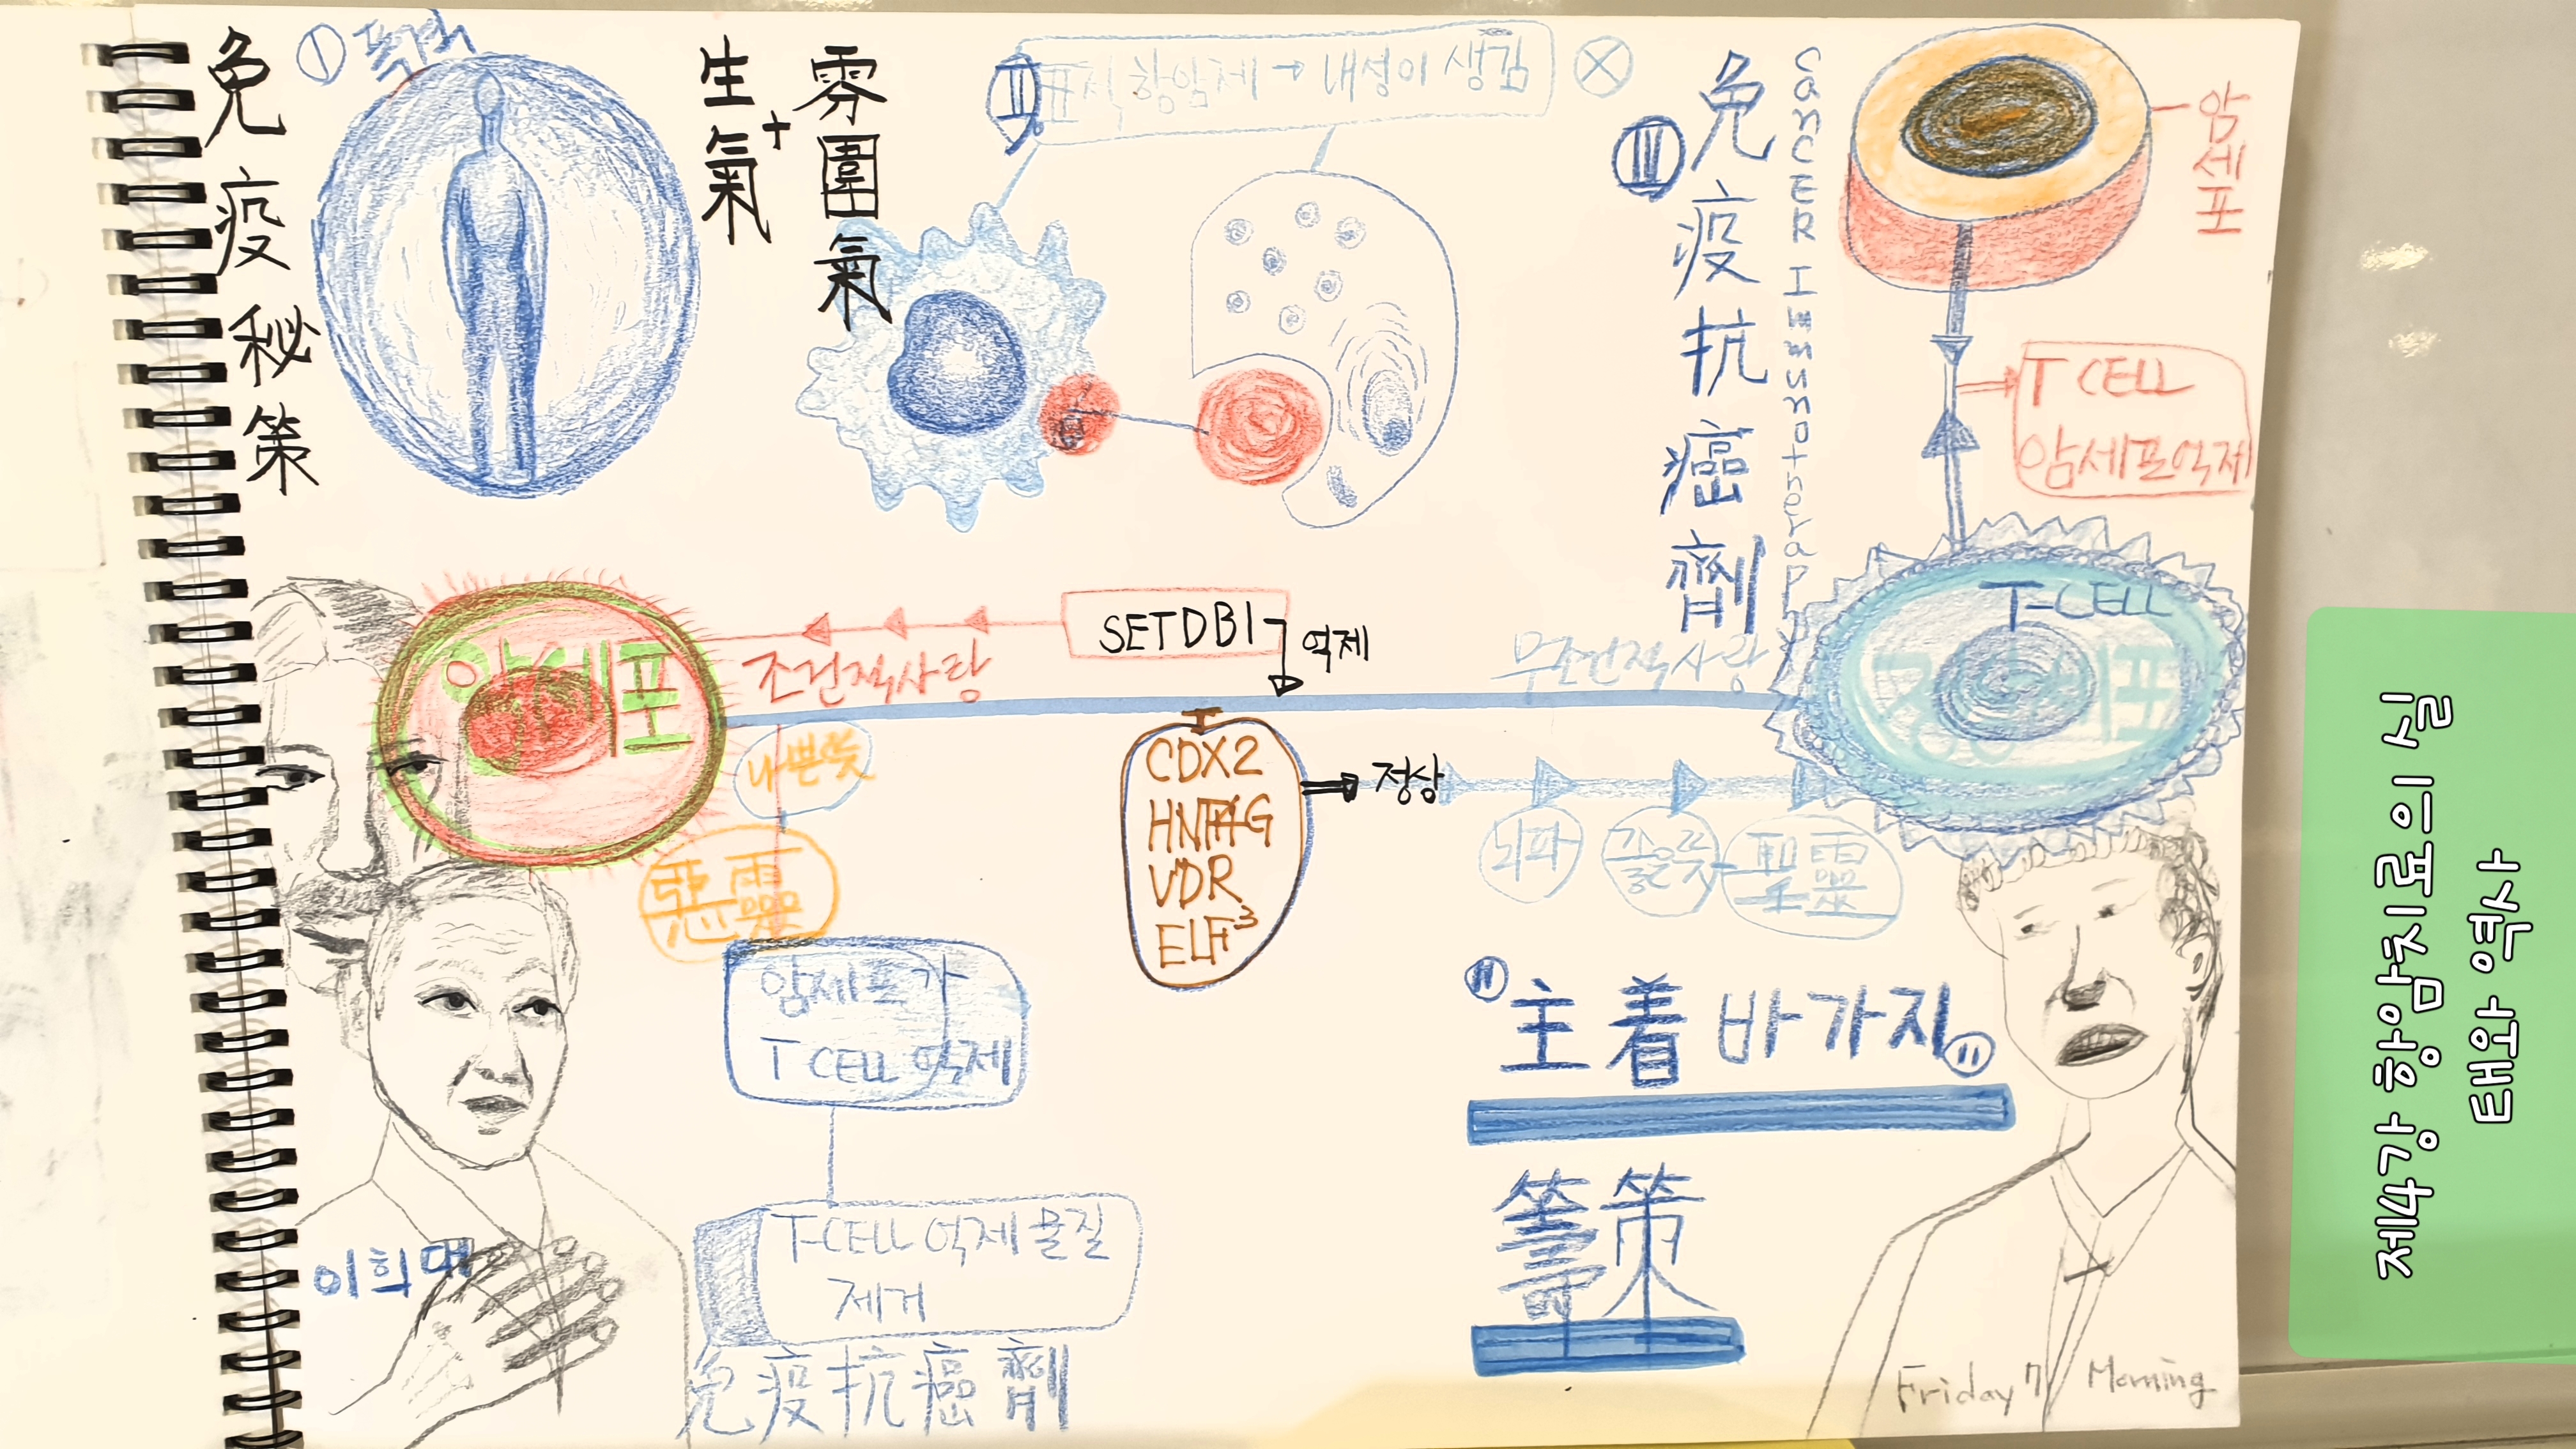 免疫秘策
①
生氣
+
雰圍氣
Ⅱ
표적 항암제 → 내성이 생김
Ⅲ
免疫抗癌劑
CANCER Immunotherapy
암세포
T CELL
암세포억제
T-CELL
정상세포
암세포
조건적사랑
SETDB1
억제
무조건적사랑
나쁜뜻
惡靈
CDX2
HNF4G
VDR
ELF3
정상
뇌파
좋은뜻
聖靈
암세포가
T CELL 억제
T-CELL 억제물질
제거
免疫抗癌劑
"主着바가지"
籌策
이희대
Friday 7 Morning
제4강 항암치료의 실
태와 역사